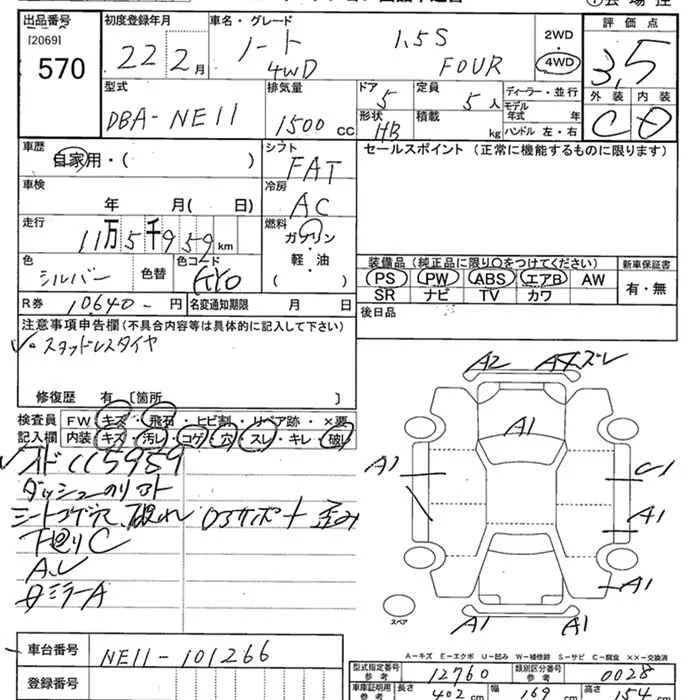 出品番号
[2069]
570
初度登録年月
22 2月
車名・グレード
ノート 1.5S
4WD FOUR
2WD
4WD
評価点
3.5
外装 内装
C D
型式
DBA-NE11
排気量
1500 CC
ドア
5
形状
HB
定員
5人
積載
kg
ディーラー・並行
モデル
年式 年
ハンドル 左・右
車歴
自家用・( )
シフト
FAT
セールスポイント (正常に機能するものに限ります)
車検
年 月( 日)
冷房
AC
走行
11万5千959km
燃料
ガソリン
軽・油
( )
色
シルバー
色替
色コード
KY0
装備品 (純正品に限り○をつけてください)
PS PW ABS エアB AW
SR ナビ TV カワ
新車保証書
有・無
R券 10640- 円
名変通知期限 月 日
後日品
注意事項申告欄(不具合内容等は具体的に記入して下さい)
スタッドレスタイヤ
修復歴 有 [箇所 ]
検査員
記入欄
FW キズ・飛石・ヒビ割・リペア跡・×要
内装 キズ・汚レ・コゲ・穴・スレ・キレ・破レ
115959
シートコゲ穴、破れ
下廻りC
A2 A4ズレ
A1
A1
A1
A1
A1 A1
スペア
A-キズ E-エクボ U-凹み W-補修跡 S-サビ C-腐食 ××-交換済
車台番号
NE11-101266
登録番号
型式指定番号
参考
12760
類別区分番号
参考
0028
車庫証明用
参考
長さ 402 cm 幅 169 cm 高さ 154 cm